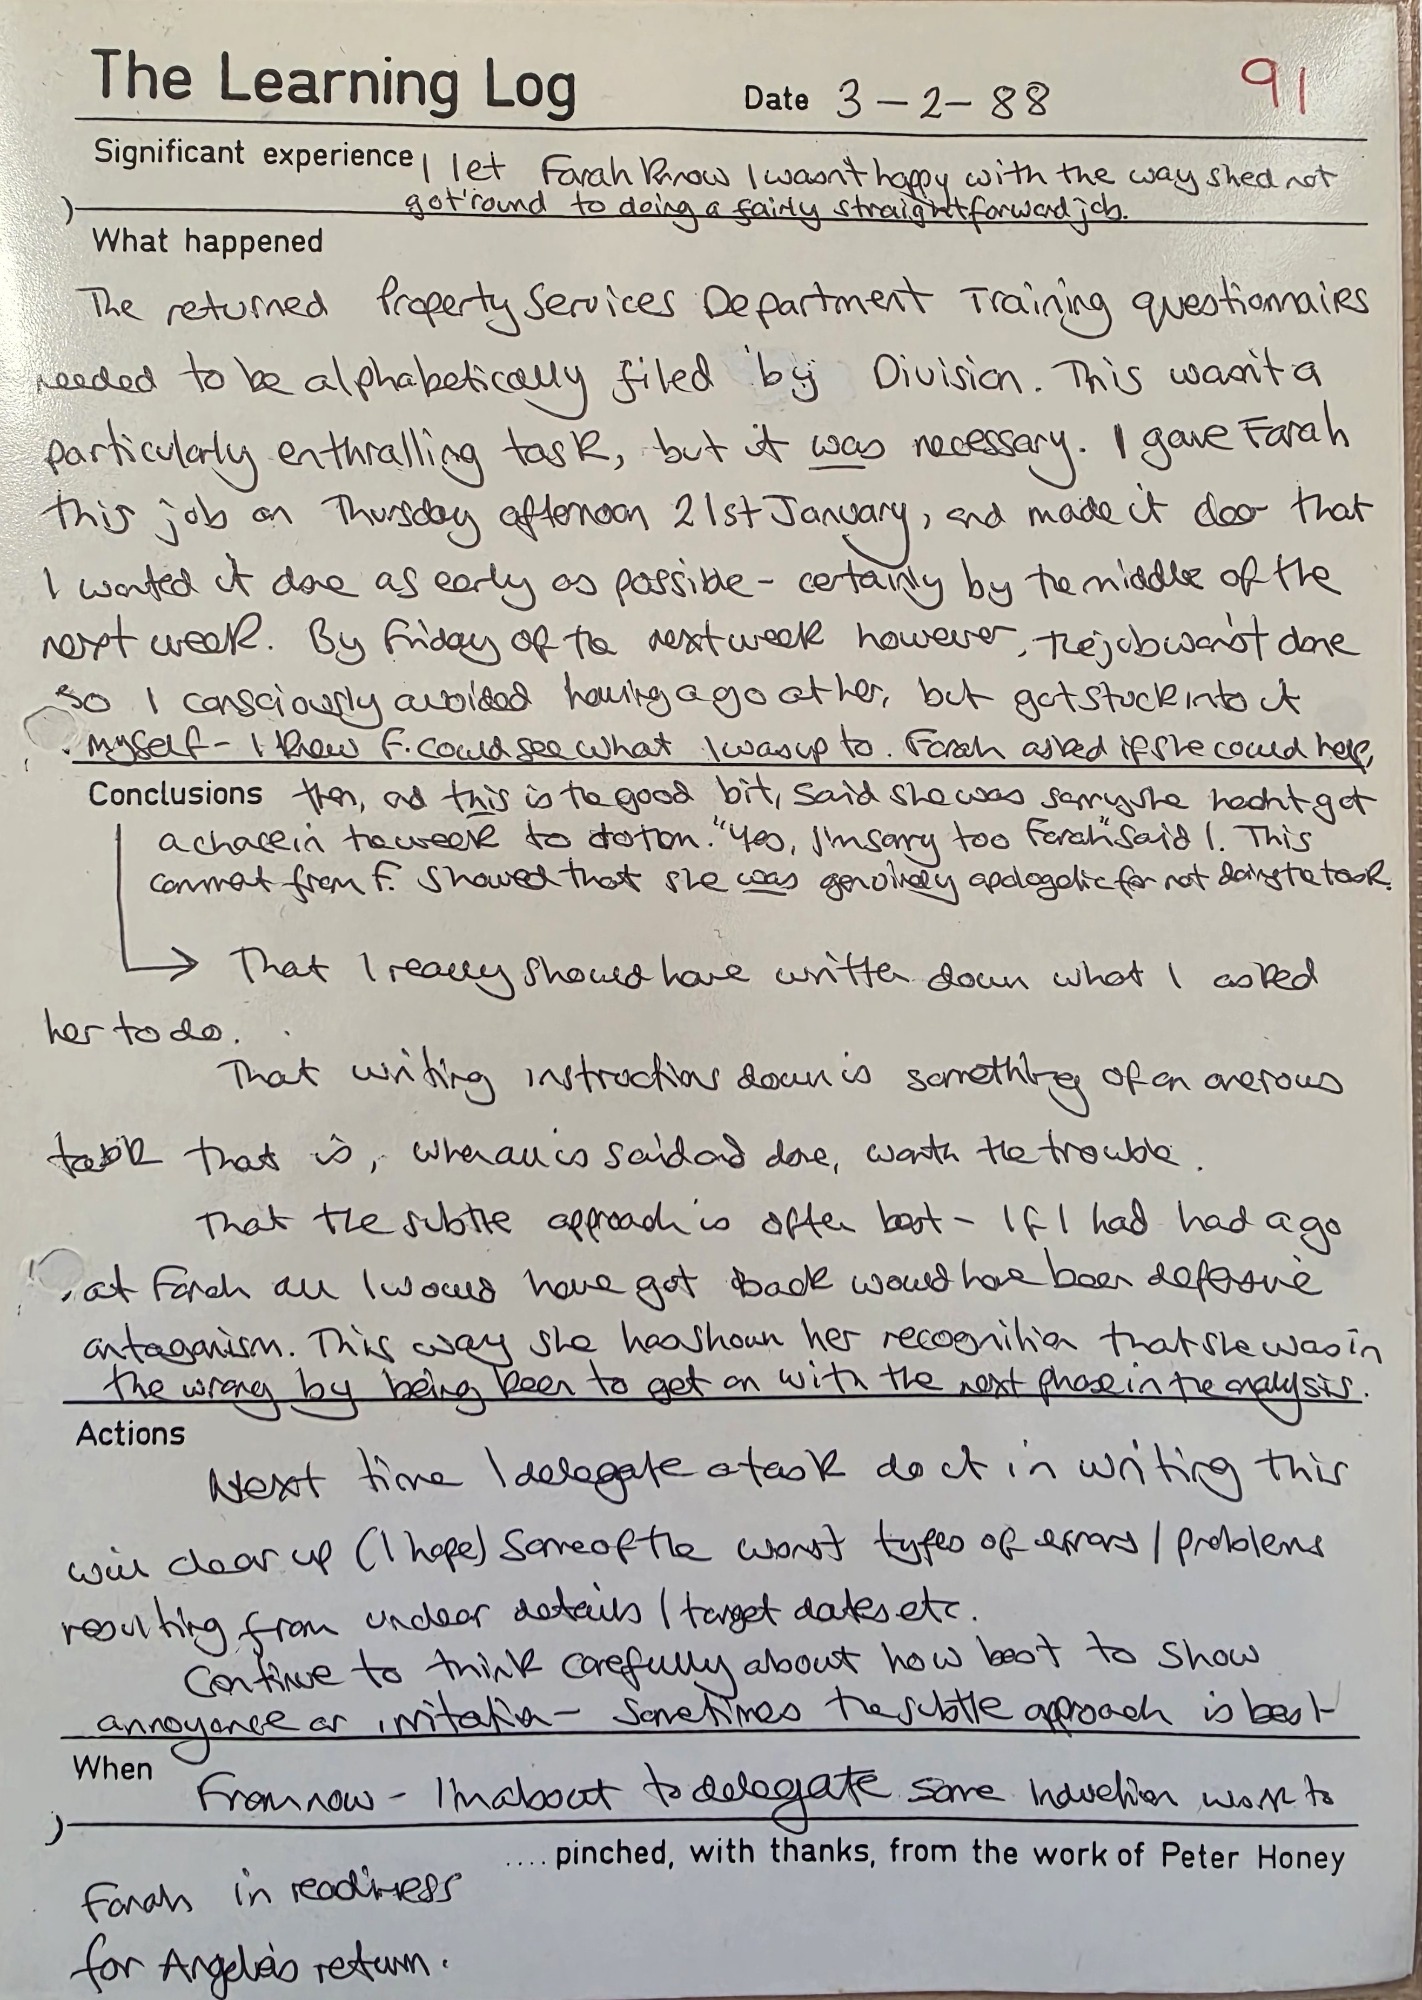 The Learning Log
Date 3-2-88
91
Significant experience I let Farah know I wasn't happy with the way shed not
got round to doing a fairly straightforward job.
What happened
The returned Property Services Department Training questionnaires
needed to be alphabetically filed by Division. This wasn't a
particularly enthralling task, but it was necessary. I gave Farah
this job on Thursday afternoon 21st January, and made it clear that
I wanted it done as early as possible - certainly by the middle of the
next week. By Friday of the next week however, the job wasn't done
so I consciously avoided having a go at her, but got stuck into it
myself - I knew F. could see what I was up to. Farah asked if she could help,
Conclusions then, and this is the good bit, said she was sorry she hadn't got
a chance in the week to do them. "Yes, I'm sorry too Farah" said I. This
comment from F. showed that she was genuinely apologetic for not doing the task.
→ That I really should have written down what I asked
her to do.
That writing instructions down is something of an onerous
task that is, when all is said and done, worth the trouble.
That the subtle approach is often best - If I had had a go
at Farah all I would have got back would have been defensive
antagonism. This way she has shown her recognition that she was in
the wrong by being keen to get on with the next phase in the analysis.
Actions
Next time I delegate a task do it in writing this
will clear up (I hope) some of the worst types of errors / problems
resulting from unclear details / target dates etc.
Continue to think carefully about how best to show
annoyance or irritation - sometimes the subtle approach is best
When
From now - I'm about to delegate some Induction work to
.... pinched, with thanks, from the work of Peter Honey
Farah in readiness
for Angela's return.